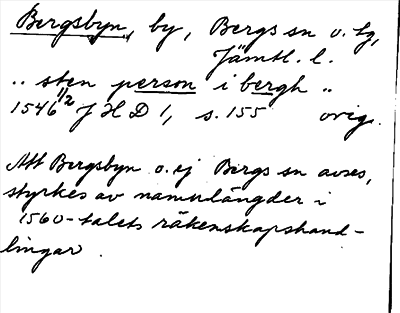 Bergsbyn, by, Bergs sn o. tg,
Jämtl. l.
.. sten person i bergh ..
1546 11/2 J H D 1, s. 155 orig.
Att Bergsbyn o. ej Bergs sn avses,
styrkes av namnlängder i
1560-talets räkenskapshand-
lingar.